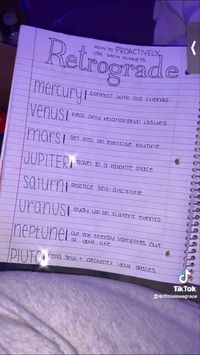 HOW TO PROACTIVELY
USE EACH PLANETS
Retrograde
mercury| connect with old friends
venus| heal any relationship issues
mars| get into an exercise routine
JUPITER| travel to a favorite place
saturn| practice self-discipline
uranus| study up on current events
neptune| cut the energy vampires out
of your life
PLUTO| feng shui + declutter your spaces
TikTok